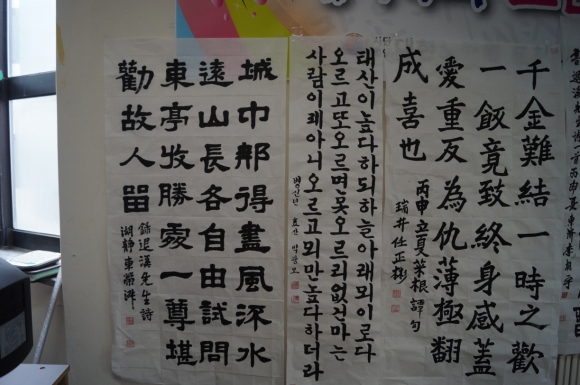 千金難結一時之歡
一飯竟致終身感蓋
愛重反為仇薄極翻
成喜也
丙申立夏菜根譚句
瑞井任正彬
태산이높다하되하늘아래뫼이로다
오르고또오르면못오르리없건마는
사람이제아니오르고뫼만높다하더라
병신년
城市那得畫風流水
遠山長各自由試問
東亭收勝處一尊堪
勸故人留
錄退溪先生詩
湖靜